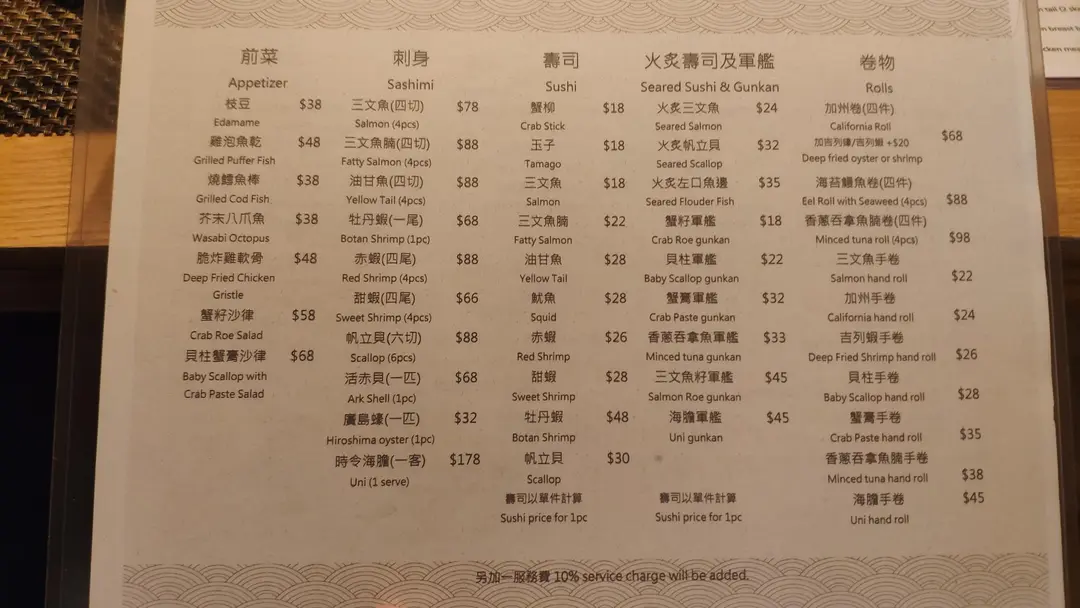 前菜
Appetizer
枝豆 $38
Edamame
雞泡魚乾 $48
Grilled Puffer Fish
燒鱈魚棒 $38
Grilled Cod Fish
芥末八爪魚 $38
Wasabi Octopus
脆炸雞軟骨 $48
Deep Fried Chicken
Gristle
蟹籽沙律 $58
Crab Roe Salad
貝柱蟹膏沙律 $68
Baby Scallop with
Crab Paste Salad
刺身
Sashimi
三文魚(四切) $78
Salmon (4pcs)
三文魚腩(四切) $88
Fatty Salmon (4pcs)
油甘魚(四切) $88
Yellow Tail (4pcs)
牡丹蝦(一尾) $68
Botan Shrimp (1pc)
赤蝦(四尾) $88
Red Shrimp (4pcs)
甜蝦(四尾) $66
Sweet Shrimp (4pcs)
帆立貝(六切) $88
Scallop (6pcs)
活赤貝(一匹) $68
Ark Shell (1pc)
廣島蠔(一匹) $32
Hiroshima oyster (1pc)
時令海膽(一客) $178
Uni (1 serve)
壽司
Sushi
蟹柳 $18
Crab Stick
玉子 $18
Tamago
三文魚 $18
Salmon
三文魚腩 $22
Fatty Salmon
油甘魚 $28
Yellow Tail
魷魚 $28
Squid
赤蝦 $26
Red Shrimp
甜蝦 $28
Sweet Shrimp
牡丹蝦 $48
Botan Shrimp
帆立貝 $30
Scallop
壽司以單件計算
Sushi price for 1pc
火炙壽司及軍艦
Seared Sushi & Gunkan
火炙三文魚 $24
Seared Salmon
火炙帆立貝 $32
Seared Scallop
火炙左口魚邊 $35
Seared Flouder Fish
蟹籽軍艦 $18
Crab Roe gunkan
貝柱軍艦 $22
Baby Scallop gunkan
蟹膏軍艦 $32
Crab Paste gunkan
香蔥吞拿魚軍艦 $33
Minced tuna gunkan
三文魚籽軍艦 $45
Salmon Roe gunkan
海膽軍艦 $45
Uni gunkan
壽司以單件計算
Sushi price for 1pc
卷物
Rolls
加州卷(四件)
California Roll $68
加吉列蠔/吉列蝦 +$20
Deep fried oyster or shrimp
海苔鰻魚卷(四件)
Eel Roll with Seaweed (4pcs) $88
香蔥吞拿魚腩卷(四件)
Minced tuna roll (4pcs) $98
三文魚手卷
Salmon hand roll $22
加州手卷
California hand roll $24
吉列蝦手卷
Deep Fried Shrimp hand roll $26
貝柱手卷
Baby Scallop hand roll $28
蟹膏手卷
Crab Paste hand roll $35
香蔥吞拿魚腩手卷
Minced tuna hand roll $38
海膽手卷 $45
Uni hand roll
另加一服務費 10% service charge will be added.